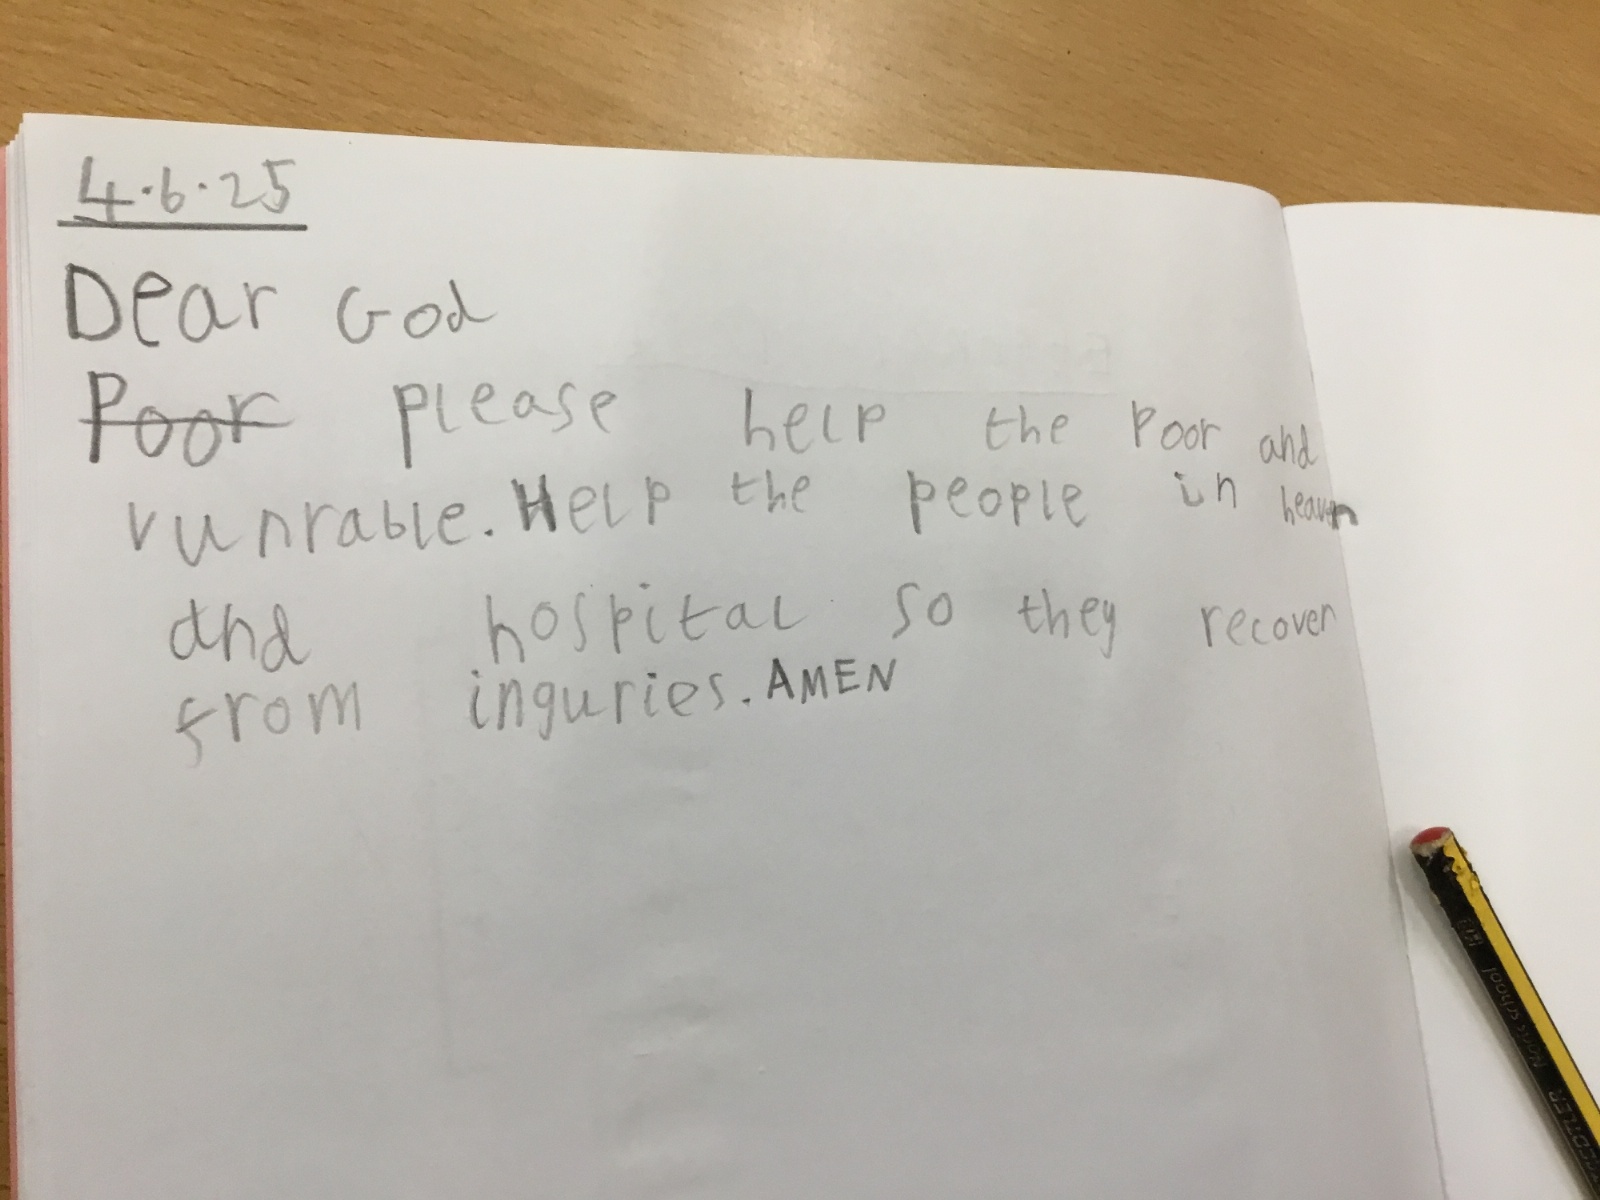 4.6.25
Dear God
Poor please help the Poor and
vunrable. Help the people in heaven
and hospital so they recover
from inguries. AMEN
Noris school